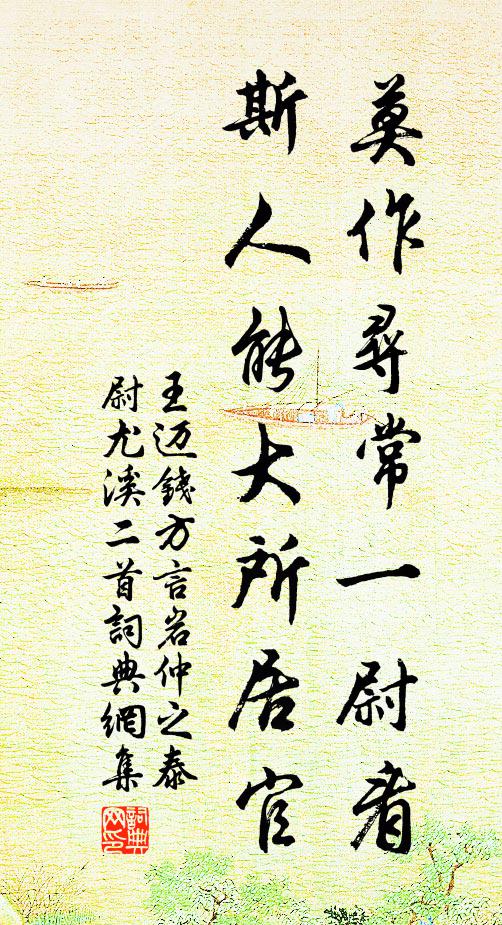 莫作尋常一尉看
斯人能大所居官
王迈錢方言岩仲之泰
尉尤溪二首詞典網集
詞典网印